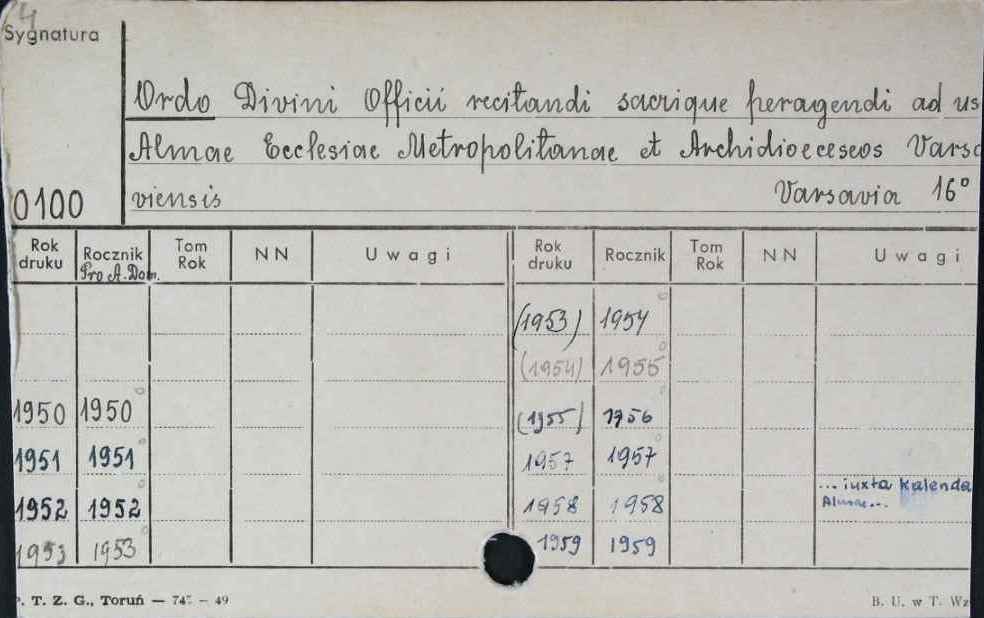 4
Sygnatura
Ordo Divini Officii recitandi sacrique peragendi ad us
Almae Ecclesiae Metropolitanae et Archidioeceseos Varsa
0100 viensis Varsavia 16°
Rok druku Rocznik Tom Rok NN Uwagi Rok druku Rocznik Tom Rok NN Uwagi
Pro A. Dom.
(1953) 1954
(1954) 1955
1950 1950 (1955) 1956
1951 1951 1957 1957
1952 1952 1958 1958 ... iuxta Kalenda
Almae...
1953 1953 1959 1959
. T. Z. G., Toruń — 49 B. U. w T. Wz